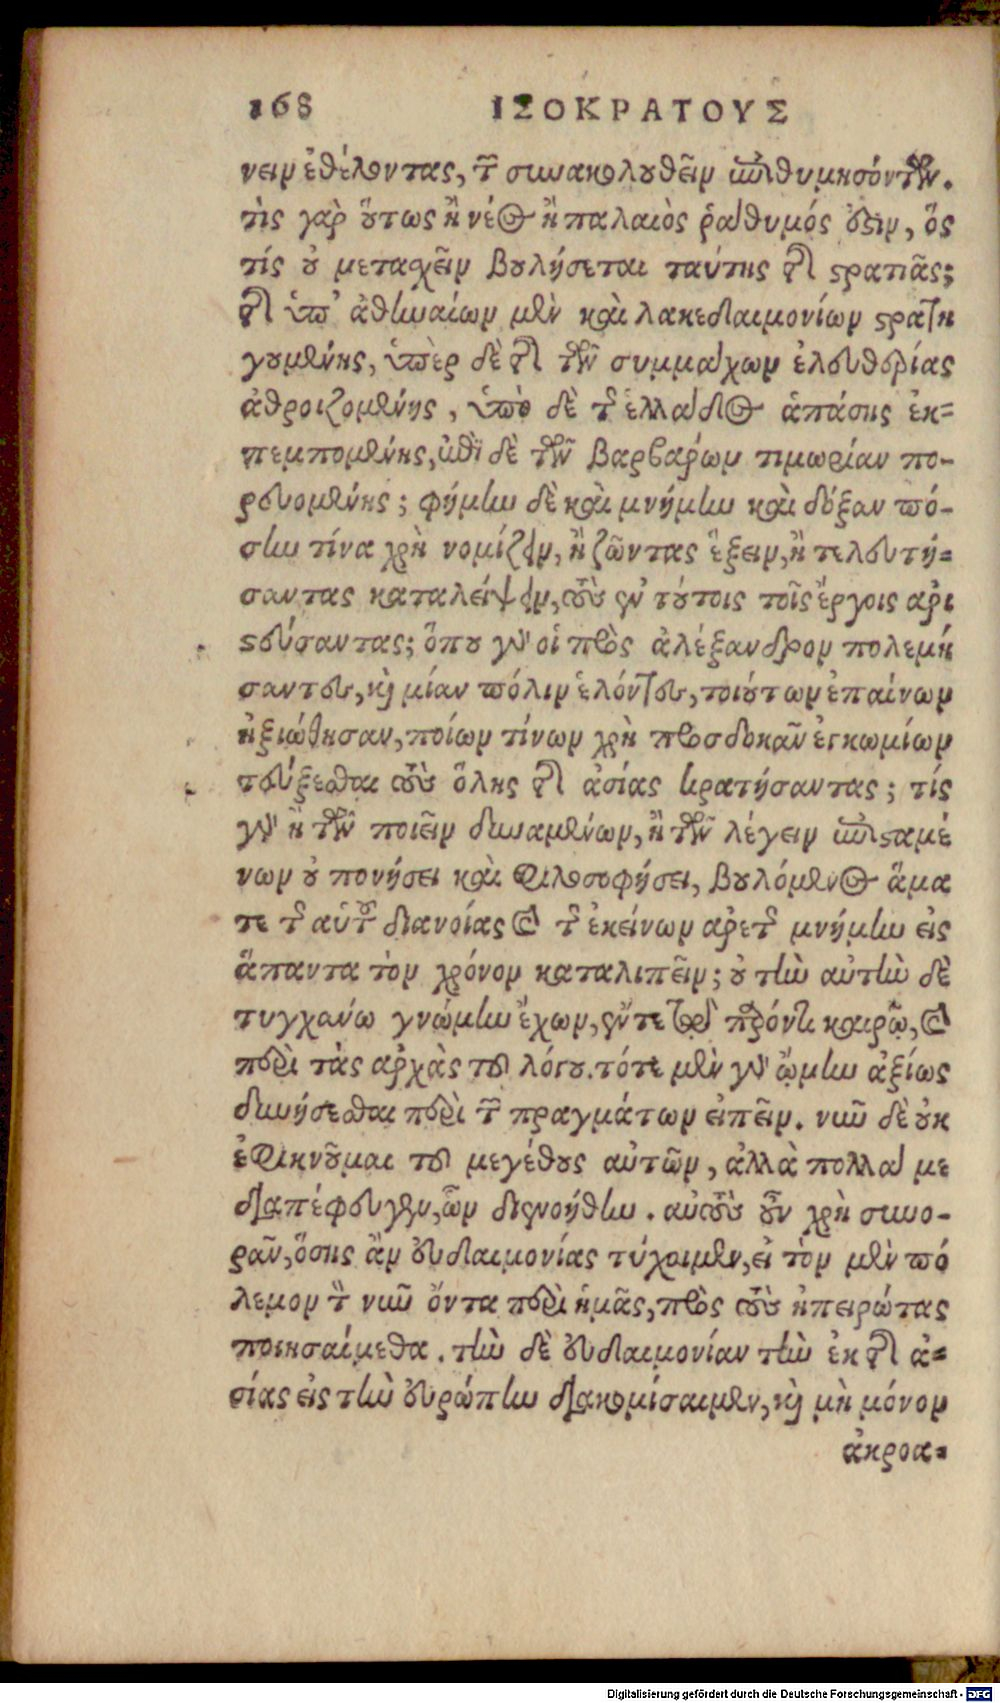 168 ΙΣΟΚΡΑΤΟΥΣ
νειν ἐθέλοντας, τῶν συνακολουθεῖν ἐπιθυμησόντων.
τὶς γὰρ οὕτως ἢ νέος ἢ παλαιὸς ῥάθυμός ἐστιν, ὅς
τίς οὐ μετασχεῖν βουλήσεται ταύτης τῆς στρατιᾶς;
τῆς ὑπ' ἀθηναίων μὲν καὶ λακεδαιμονίων στρατη
γουμένης, ὑπὲρ δὲ τῆς τῶν συμμάχων ἐλευθερίας
ἀθροιζομένης, ὑπὸ δὲ τῆς ἑλλάδος ἁπάσης ἐκ-
πεμπομένης, ἐπὶ δὲ τῶν βαρβάρων τιμωρίαν πο-
ρευομένης; φήμην δὲ καὶ μνήμην καὶ δόξαν πό-
σην τίνα χρὴ νομίζειν, ἢ ζῶντας ἕξειν, ἢ τελευτή-
σαντας καταλείψειν, τοὺς ἐν τούτοις τοῖς ἔργοις ἀρι
στεύσαντας; ὅπου γὰρ οἱ πρὸς ἀλέξανδρον πολεμή
σαντες, καὶ μίαν πόλιν ἑλόντες, τοιούτων ἐπαίνων
ἠξιώθησαν, ποίων τίνων χρὴ προσδοκᾶν ἐγκωμίων
τεύξεσθαι τοὺς ὅλης τῆς ἀσίας κρατήσαντας; τίς
γὰρ ἢ τῶν ποιεῖν δυναμένων, ἢ τῶν λέγειν ἐπισταμέ
νων οὐ πονήσει καὶ φιλοσοφήσει, βουλόμενος ἅμα
τε τῆς αὑτοῦ διανοίας καὶ τῆς ἐκείνων ἀρετῆς μνήμην εἰς
ἅπαντα τὸν χρόνον καταλιπεῖν; οὐ τὴν αὐτὴν δὲ
τυγχάνω γνώμην ἔχων, ἔν τε τῷ παρόντι καιρῷ, καὶ
περὶ τὰς ἀρχὰς τοῦ λόγου. τότε μὲν γὰρ ᾤμην ἀξίως
δυνήσεσθαι περὶ τῶν πραγμάτων εἰπεῖν. νῦν δὲ οὐκ
ἐφικνοῦμαι τοῦ μεγέθους αὐτῶν, ἀλλὰ πολλά με
διαπέφευγεν, ὧν διενοήθην. αὐτοὺς οὖν χρὴ συνο-
ρᾶν, ὅσης ἂν εὐδαιμονίας τύχοιμεν, εἰ τὸν μὲν πό
λεμον τὸν νῦν ὄντα περὶ ἡμᾶς, πρὸς τοὺς ἠπειρώτας
ποιησαίμεθα. τὴν δὲ εὐδαιμονίαν τὴν ἐκ τῆς ἀ-
σίας εἰς τὴν εὐρώπην διακομίσαιμεν, καὶ μὴ μόνον
ἀκροα-
Digitalisierung gefördert durch die Deutsche Forschungsgemeinschaft - DFG